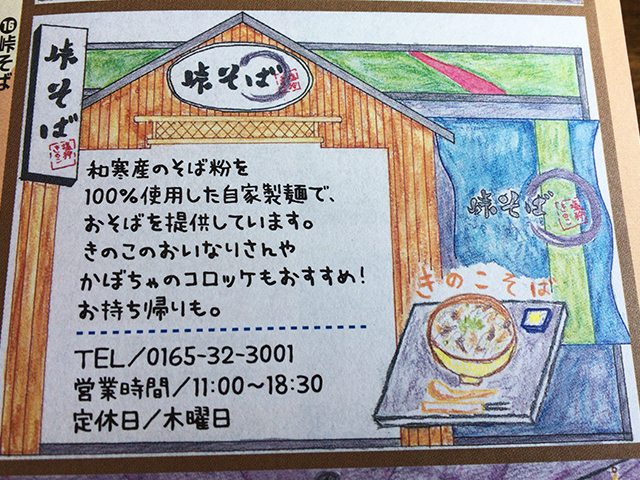 ⑯峠そば
峠そば
峠そば
和寒産のそば粉を
100%使用した自家製麺で、
おそばを提供しています。
きのこのおいなりさんや
かぼちゃのコロッケもおすすめ!
お持ち帰りも。
TEL/0165-32-3001
営業時間/11:00〜18:30
定休日/木曜日
峠そば
きのこそば